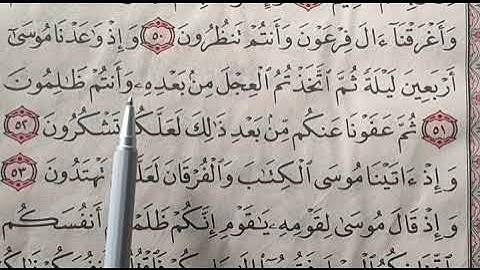 وَأَغْرَقْنَآ ءَالَ فِرْعَوْنَ وَأَنتُمْ تَنظُرُونَ ٥٠ وَإِذْ وَٰعَدْنَا مُوسَىٰٓ
أَرْبَعِينَ لَيْلَةً ثُمَّ ٱتَّخَذْتُمُ ٱلْعِجْلَ مِنۢ بَعْدِهِۦ وَأَنتُمْ ظَٰلِمُونَ
٥١ ثُمَّ عَفَوْنَا عَنكُم مِّنۢ بَعْدِ ذَٰلِكَ لَعَلَّكُمْ تَشْكُرُونَ ٥٢
وَإِذْ ءَاتَيْنَا مُوسَى ٱلْكِتَٰبَ وَٱلْفُرْقَانَ لَعَلَّكُمْ تَهْتَدُونَ ٥٣
وَإِذْ قَالَ مُوسَىٰ لِقَوْمِهِۦ يَٰقَوْمِ إِنَّكُمْ ظَلَمْتُمْ أَنفُسَكُم